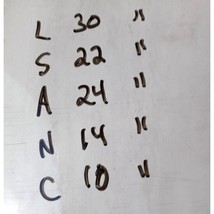 L 30 "
S 22 "
A 24 "
N 14 "
C 10 "